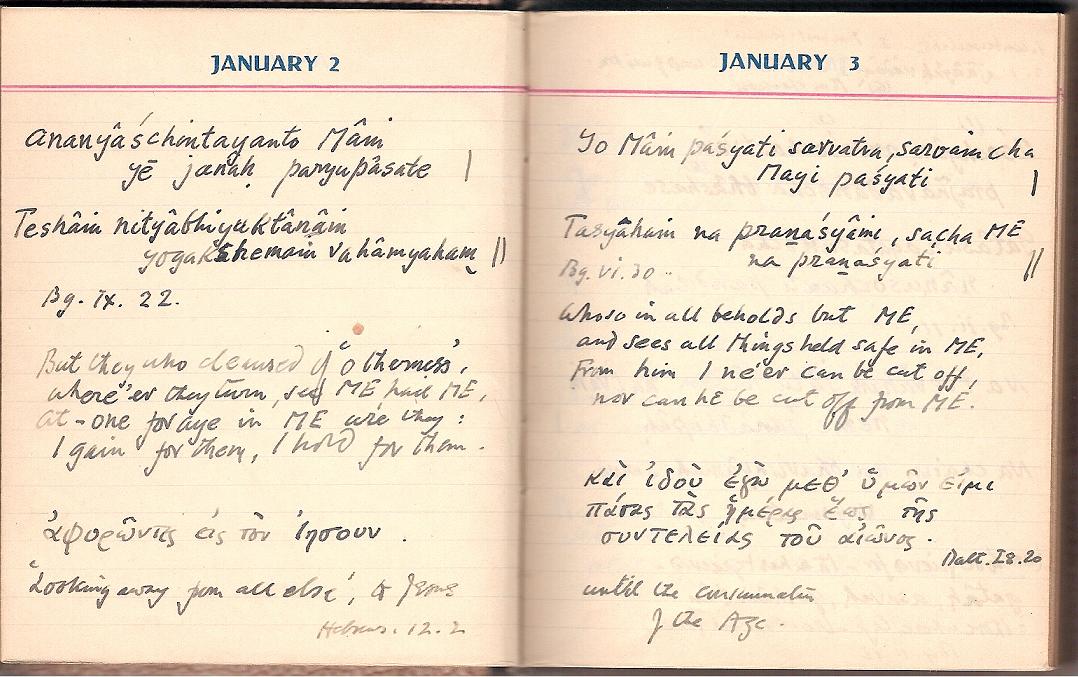 JANUARY 2
Ananyâśchintayanto Mâm
yē janâḥ paryupâsate |
Teshâm nityâbhiyuktânâm
yogakshemam vahâmyaham ||
Bg. IX. 22.
But they who cleansed of 'otherness',
where'er they turn, see ME hail ME,
at-one for aye in ME are they:
I gain for them, I hold for them.
ἀφορῶντες εἰς τὸν Ἰησουν.
'Looking away from all else', to Jesus
Hebrews. 12.2
JANUARY 3
Yo Mâm paśyati sarvatra, sarvam cha
Mayi paśyati |
Tasyâham na praṇaśyâmi, sa cha ME
na praṇaśyati ||
Bg. vi. 30..
Whoso in all beholds but ME,
and sees all things held safe in ME,
From him I ne'er can be cut off,
nor can he be cut off from ME.
καὶ ἰδοὺ ἐγὼ μεθ' ὑμῶν εἰμι
πάσας τὰς ἡμέρας ἕως τῆς
συντελείας τοῦ αἰῶνος.
Matt. 28.20
until the consummation
of the Age.